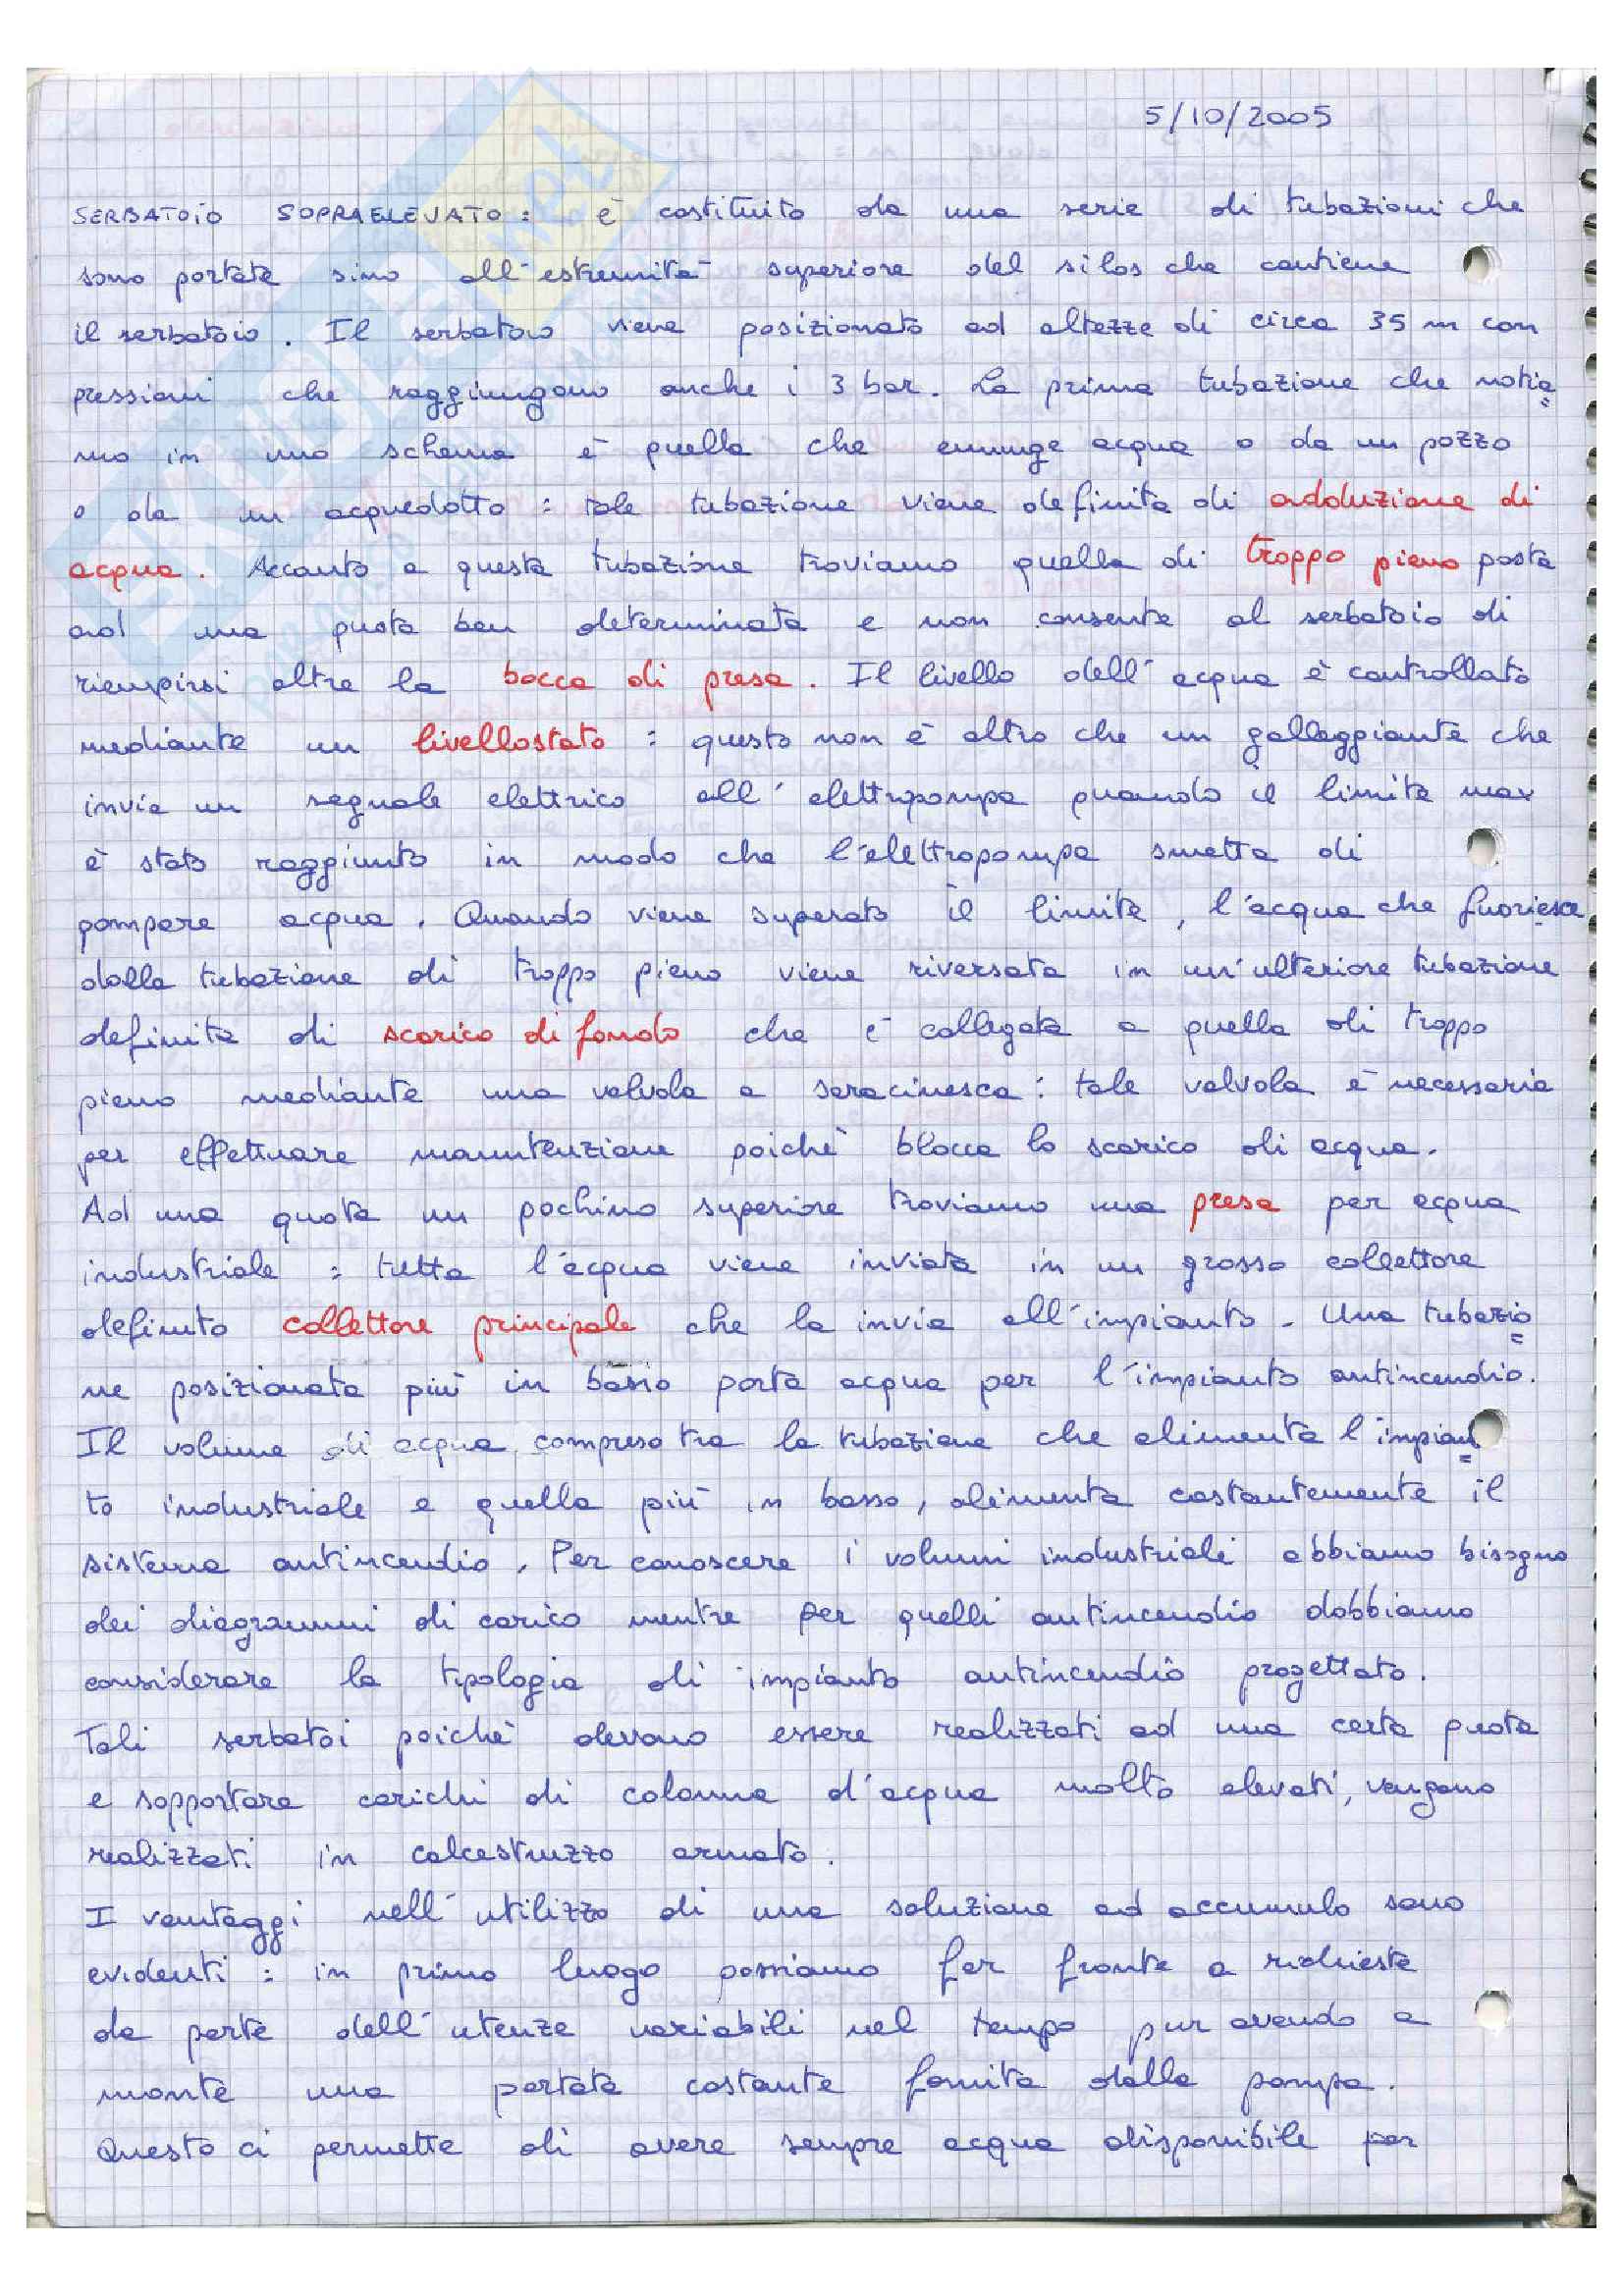 5/10/2005
SERBATOIO SOPRAELEVATO: è costituito da una serie di tubazioni che
sono portate sino all'estremità superiore del silos che contiene
il serbatoio. Il serbatoio viene posizionato ad altezze di circa 35 m con
pressioni che raggiungono anche i 3 bar. La prima tubazione che notia=
mo in uno schema è quella che emunge acqua o da un pozzo
o da un acquedotto: tale tubazione viene definita di adduzione di
acqua. Accanto a questa tubazione troviamo quella di troppo pieno posta
ad una quota ben determinata e non consente al serbatoio di
riempirsi oltre la bocca di presa. Il livello dell'acqua è controllato
mediante un livellostato: questo non è altro che un galleggiante che
invia un segnale elettrico all'elettropompa quando il limite max
è stato raggiunto in modo che l'elettropompa smetta di
pompare acqua. Quando viene superato il limite, l'acqua che fuoriesce
dalla tubazione di troppo pieno viene riversata in un'ulteriore tubazione
definita di scarico di fondo che è collegata a quella di troppo
pieno mediante una valvola a saracinesca: tale valvola è necessaria
per effettuare manutenzione poichè blocca lo scarico di acqua.
Ad una quota un pochino superiore troviamo una presa per acqua
industriale: tutta l'acqua viene inviata in un grosso collettore
definito collettore principale che la invia all'impianto. Una tubazio=
ne posizionata più in basso porta acqua per l'impianto antincendio.
Il volume di acqua compreso tra la tubazione che alimenta l'impian=
to industriale e quella più in basso, alimenta costantemente il
sistema antincendio. Per conoscere i volumi industriali abbiamo bisogno
dei diagrammi di carico mentre per quelli antincendio dobbiamo
considerare la tipologia di impianto antincendio progettato.
Tali serbatoi poichè devono essere realizzati ad una certa quota
e sopportare carichi di colonna d'acqua molto elevati, vengono
realizzati in calcestruzzo armato.
I vantaggi nell'utilizzo di una soluzione ad accumulo sono
evidenti: in primo luogo possiamo far fronte a richieste
da parte dell'utenza variabili nel tempo pur avendo a
monte una portata costante fornita dalla pompa.
Questo ci permette di avere sempre acqua disponibile per